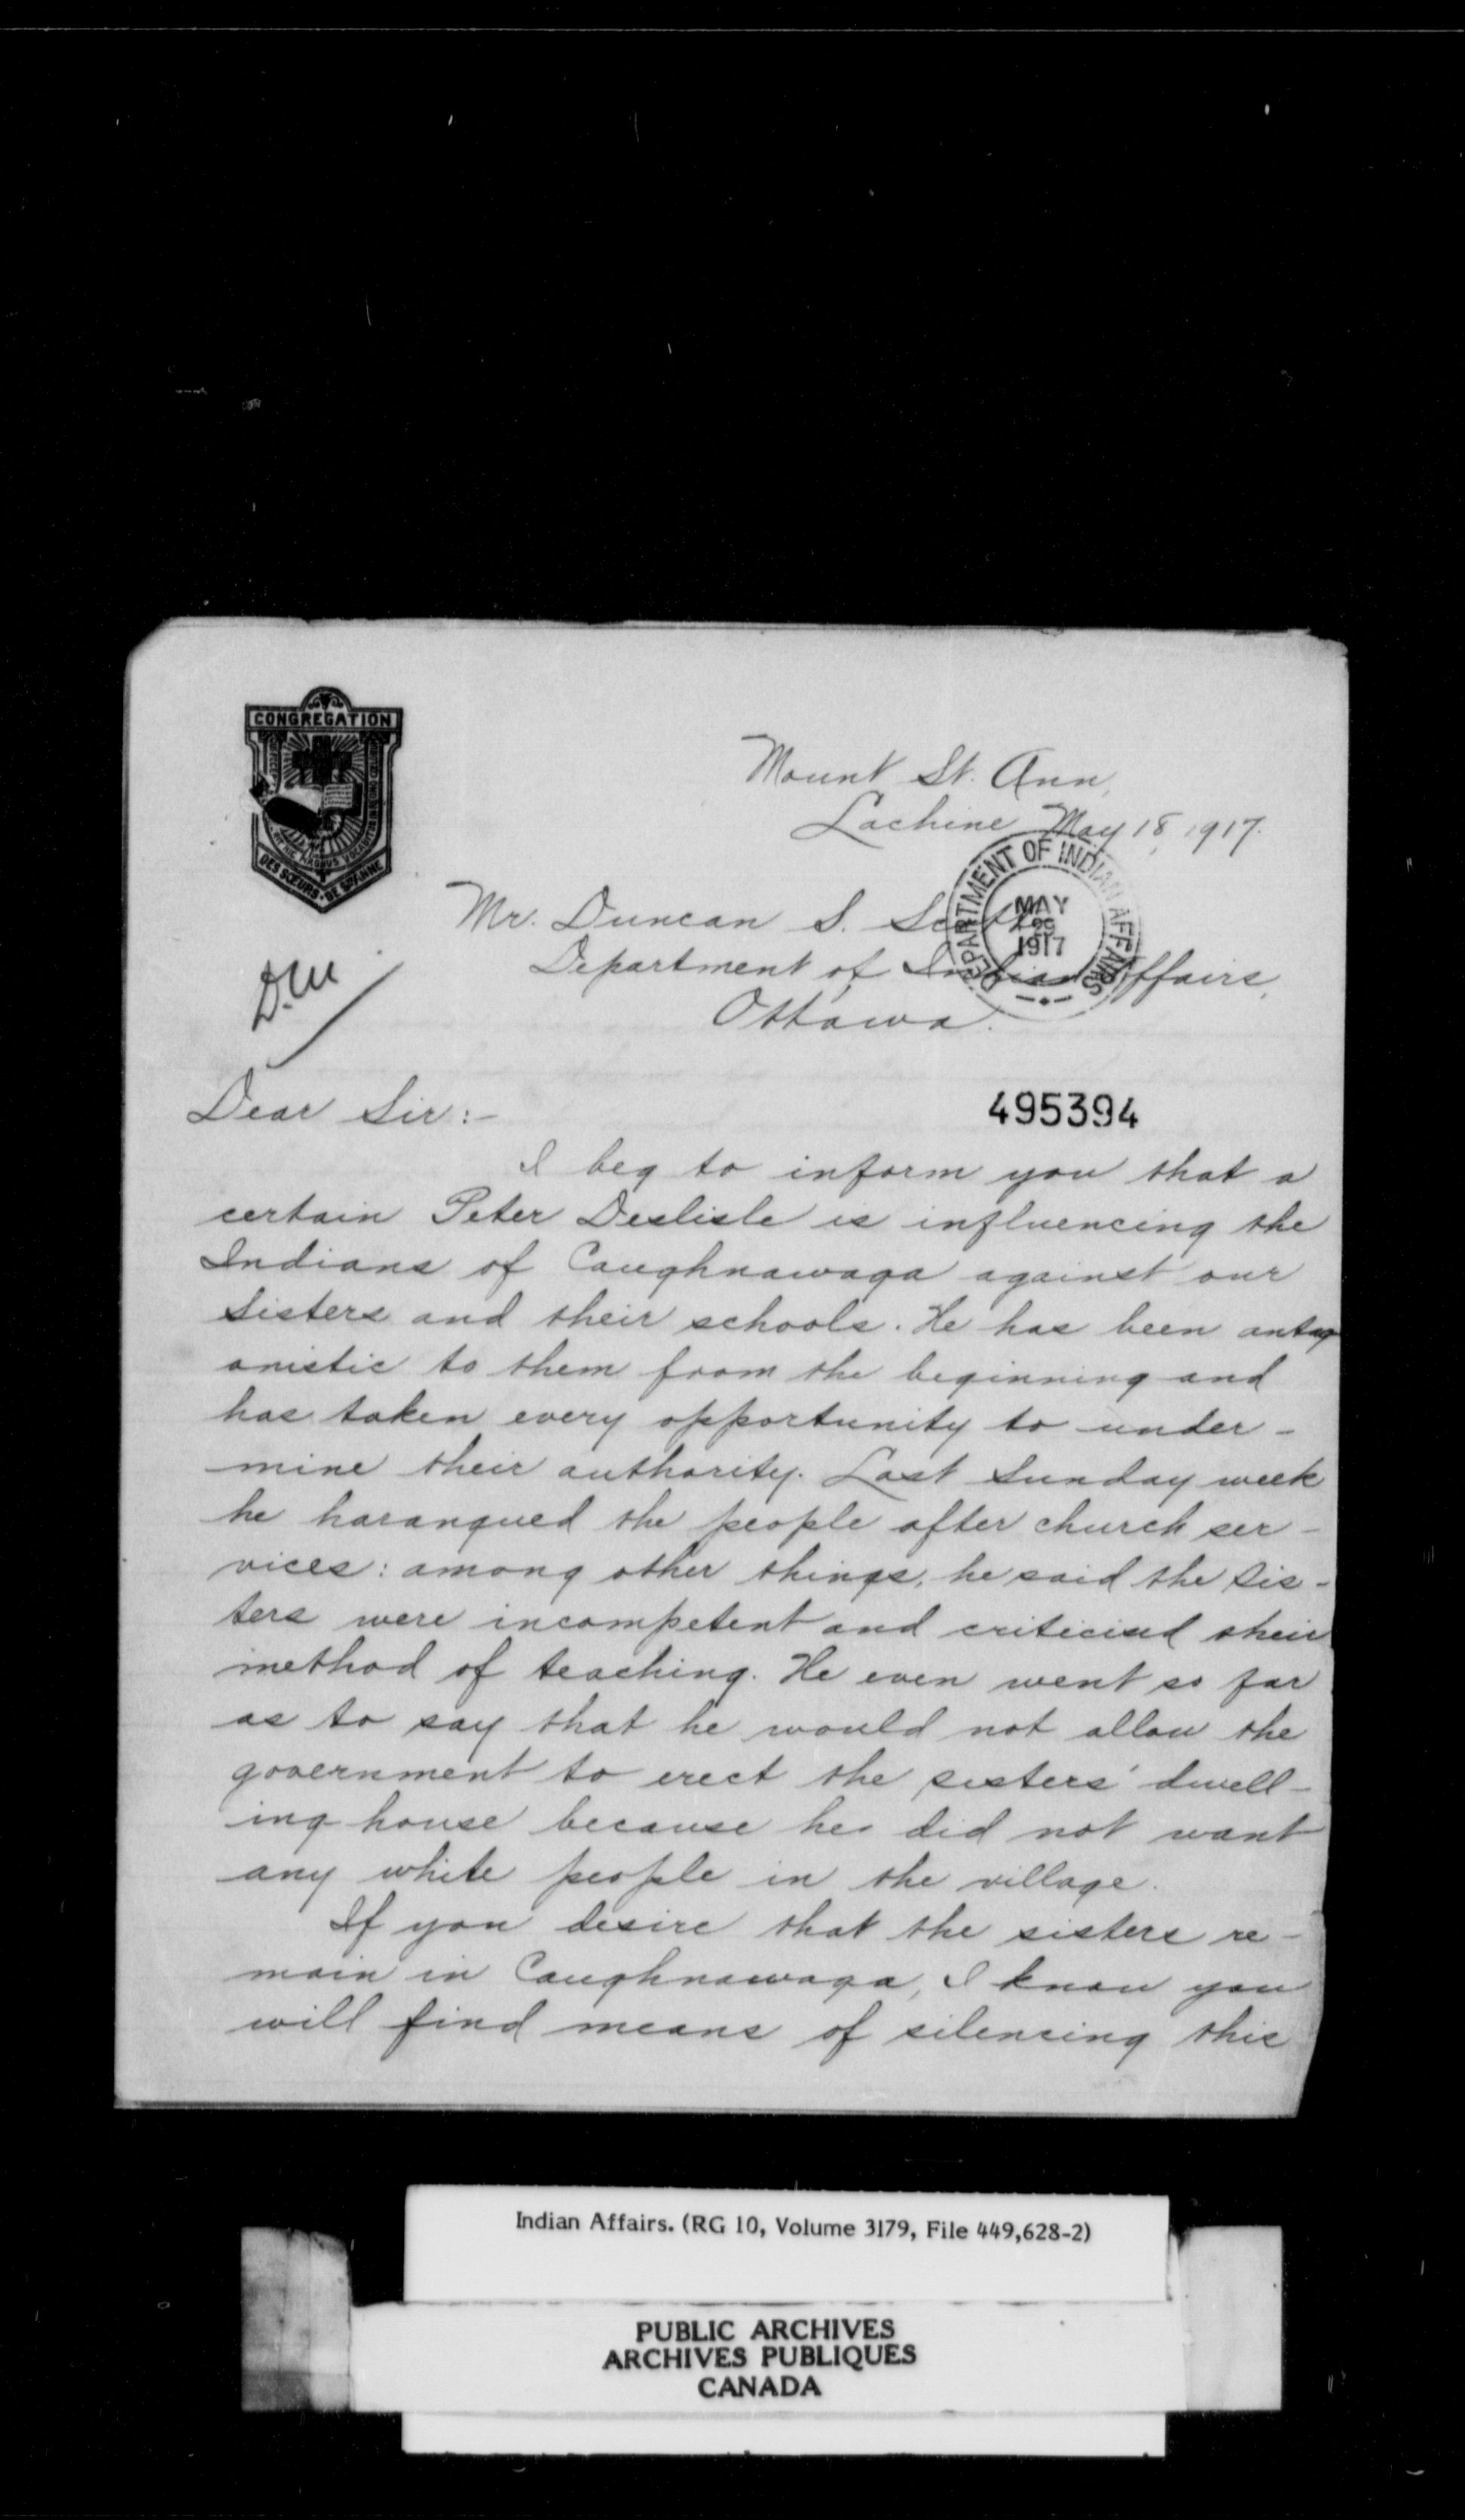 CONGREGATION
DES SOEURS DE STE ANNE
Mount St. Ann,
Lachine May 18, 1917.
DEPARTMENT OF INDIAN AFFAIRS
MAY
1917
Mr. Duncan S. Scott
Department of Indian Affairs,
Ottawa.
Dear Sir:-
495394
I beg to inform you that a
certain Peter Deslisle is influencing the
Indians of Caughnawaga against our
Sisters and their schools. He has been antag
onistic to them from the beginning and
has taken every opportunity to under-
mine their authority. Last Sunday week
he harangued the people after church ser-
vices: among other things, he said the Sis-
ters were incompetent and criticised their
method of teaching. He even went so far
as to say that he would not allow the
government to erect the sisters' dwell-
ing house because he did not want
any white people in the village.
If you desire that the sisters re-
main in Caughnawaga, I know you
will find means of silencing this
Indian Affairs. (RG 10, Volume 3179, File 449,628-2)
PUBLIC ARCHIVES
ARCHIVES PUBLIQUES
CANADA